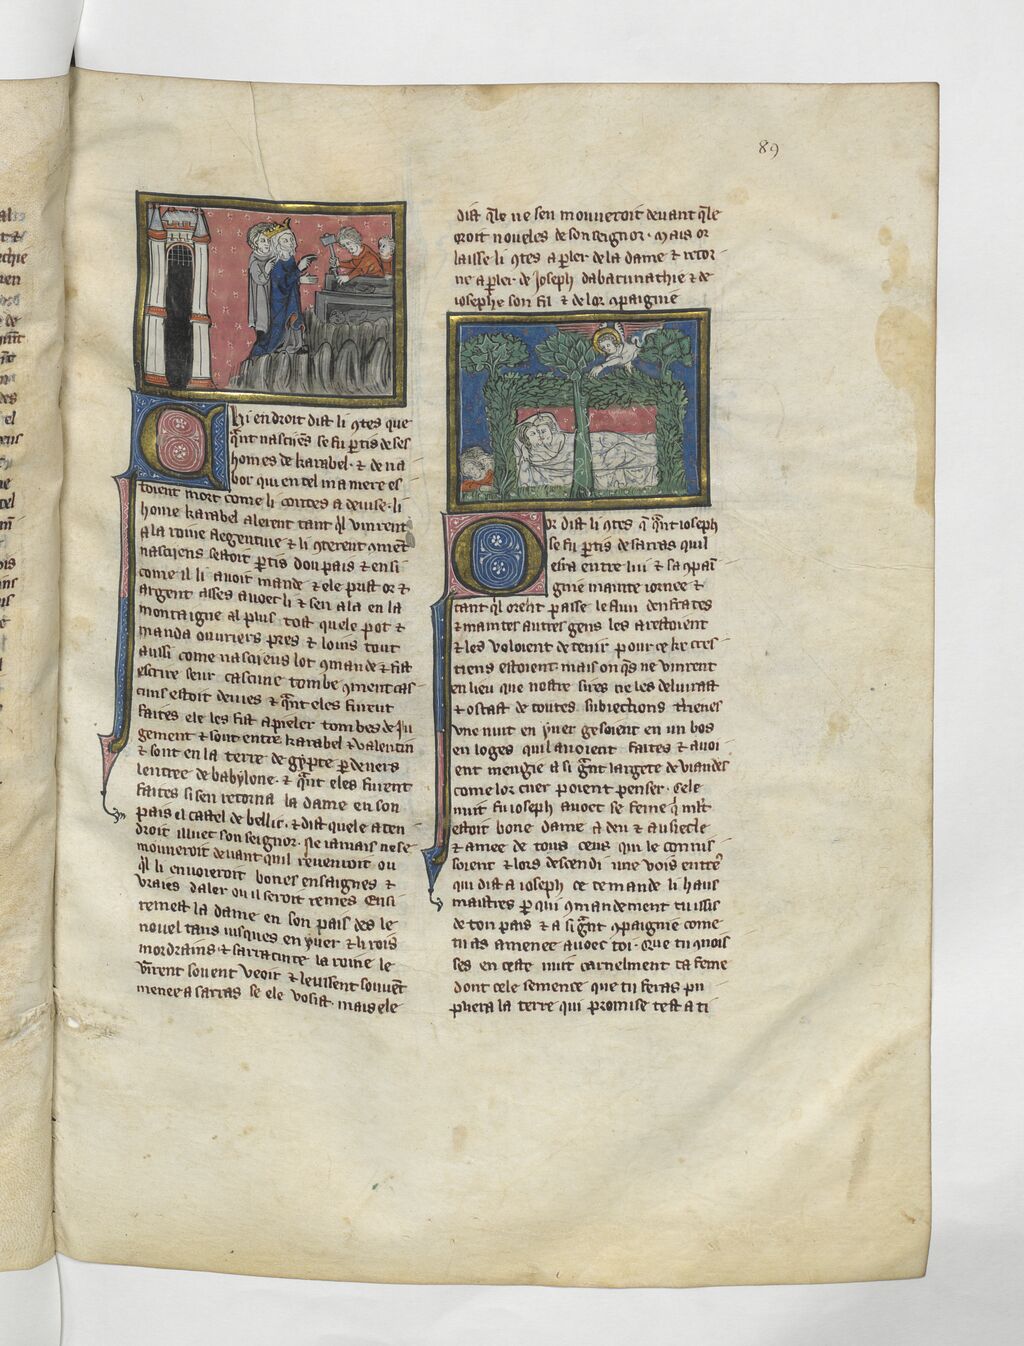 89
Chi endroit dist li 9tes que
q̃nt nasciẽs se fu ꝑtis de ses
homes de karabel · ⁊ de na
bor qui en tel maniere es
toient mort come li contes a deuise · li
home karabel alerent tant q̃l vinrent
a la roine flegentine ⁊ li 9terent 9mẽt
nasciens sestoit ꝑtis dou pais ⁊ ensi
come il li auoit mande ⁊ ele prist or ⁊
argent asses auoec li ⁊ sen ala en la
montaigne al plus tost quele pot ⁊
manda ouuriers pres ⁊ loins tout
aussi come nasciens lot 9mande ⁊ fist
escrire seur cascune tombe 9ment cas
cuns estoit deuies ⁊ q̃nt eles furent
faites ele les fist apieler tombes de iu
gement ⁊ sont entre karabel ⁊ valentin
⁊ sont en la terre de gypte ꝑ deuers
lentree de babylone · ⁊ q̃nt eles furent
faites si sen retorna la dame en son
pais il castel de bellic · ⁊ dist quele aten
droit illuec son seignor · Ne iamais ne se
mouueroit deuant quil reuenroit ou
q̃l li enuoieroit bones ensaignes ⁊
vraies daler ou il seroit remes Ensi
remest la dame en son pais des le
nouel tans iusques en yuer ⁊ li rois
mordrains ⁊ sarracinte la roine le
vĩrent souent veoir ⁊ leuissent souuẽt
menee a sarras se ele vosist · mais ele
dist q̃le ne sen mouueroit deuant q̃le
oroit noueles de son seignor · Mais or
laisse li 9tes a ꝑler de la dame ⁊ retor
ne a ꝑler de Joseph dabarimathie ⁊ de
iosephe son fil ⁊ de lor 9paignie
Or dist li 9tes q̃ q̃nt ioseph
se fu ꝑtis de sarras quil
erra entre lui ⁊ sa 9pai
gnie mainte iornee ⁊
tant q̃l orent passe le flun deufrates
⁊ maintes autres gens les arestoient
⁊ les voloient detenir pour ce ke cres
tiens estoient mais onq̃s ne vinrent
en lieu que nostre sires ne les deliurast
⁊ ostast de toutes subiections trienes
vne nuit en yuer gesoient en un bos
en loges quil auoient faites ⁊ auoi
ent mengie a si g̃nt largete de viandes
come lor cuer poient penser · Cele
nuit fu ioseph auoec se feme q̃ mlt
estoit bone dame a deu ⁊ au siecle
⁊ amee de tous ceus qui le connis
soient ⁊ lors descendi une vois entre
qui dist a ioseph ce te mande li haus
maistres ꝑ qui 9mandement tu issis
de ton pais ⁊ a si g̃nt 9paignie come
tu as amenee auoec toi · Que tu 9nois
ses en ceste nuit carnelment ta feme
dont cele semence que tu feras pu
pliera la terre qui promise test a ti